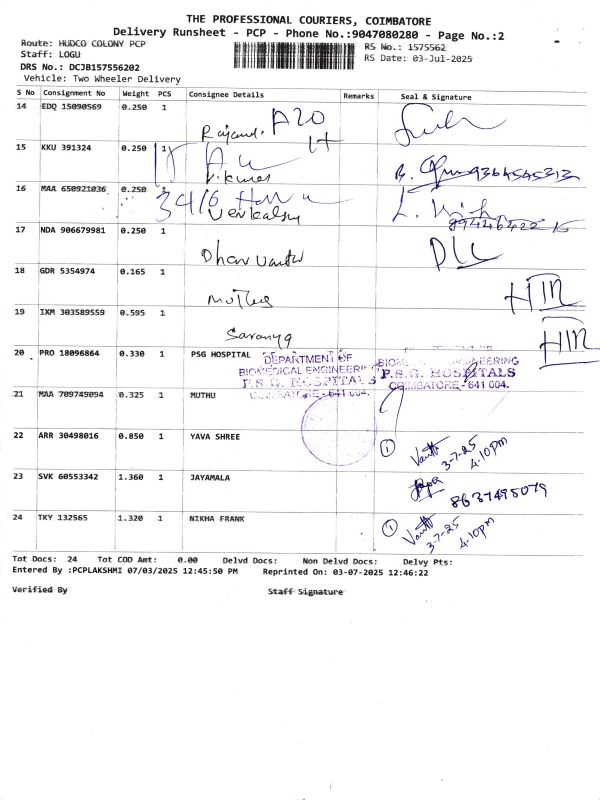 THE PROFESSIONAL COURIERS, COIMBATORE
Delivery Runsheet - PCP - Phone No.:9047080280 - Page No.:2
Route: HUDCO COLONY PCP
RS No.: 1575562
Staff: LOGU
RS Date: 03-Jul-2025
DRS No.: DCJB157556202
Vehicle: Two Wheeler Delivery
S No Consignment No Weight PCS Consignee Details Remarks Seal & Signature
14 EDQ 15090569 0.250 1
15 KKU 391324 0.250 1
16 MAA 650921036 0.250 1
17 NDA 906679981 0.250 1
DLL
18 GDR 5354974 0.165 1
19 IXM 303589559 0.595 1
Saranya
20 PRO 18096864 0.330 1 PSG HOSPITAL
DEPARTMENT OF
BIOMEDICAL ENGINEERING
P.S.G. HOSPITALS
COIMBATORE - 641 004.
BIOMEDICAL ENGINEERING
P.S.G. HOSPITALS
COIMBATORE - 641 004.
21 MAA 709749094 0.325 1 MUTHU
22 ARR 30498016 0.850 1 YAVA SHREE
1
3-7-25
4.10pm
23 SVK 60553342 1.360 1 JAYAMALA
8637495079
24 TKY 132565 1.320 1 NIKHA FRANK
1
3-7-25
4.10pm
Tot Docs: 24 Tot COD Amt: 0.00 Delvd Docs: Non Delvd Docs: Delvy Pts:
Entered By :PCPLAKSHMI 07/03/2025 12:45:50 PM Reprinted On: 03-07-2025 12:46:22
Verified By Staff Signature